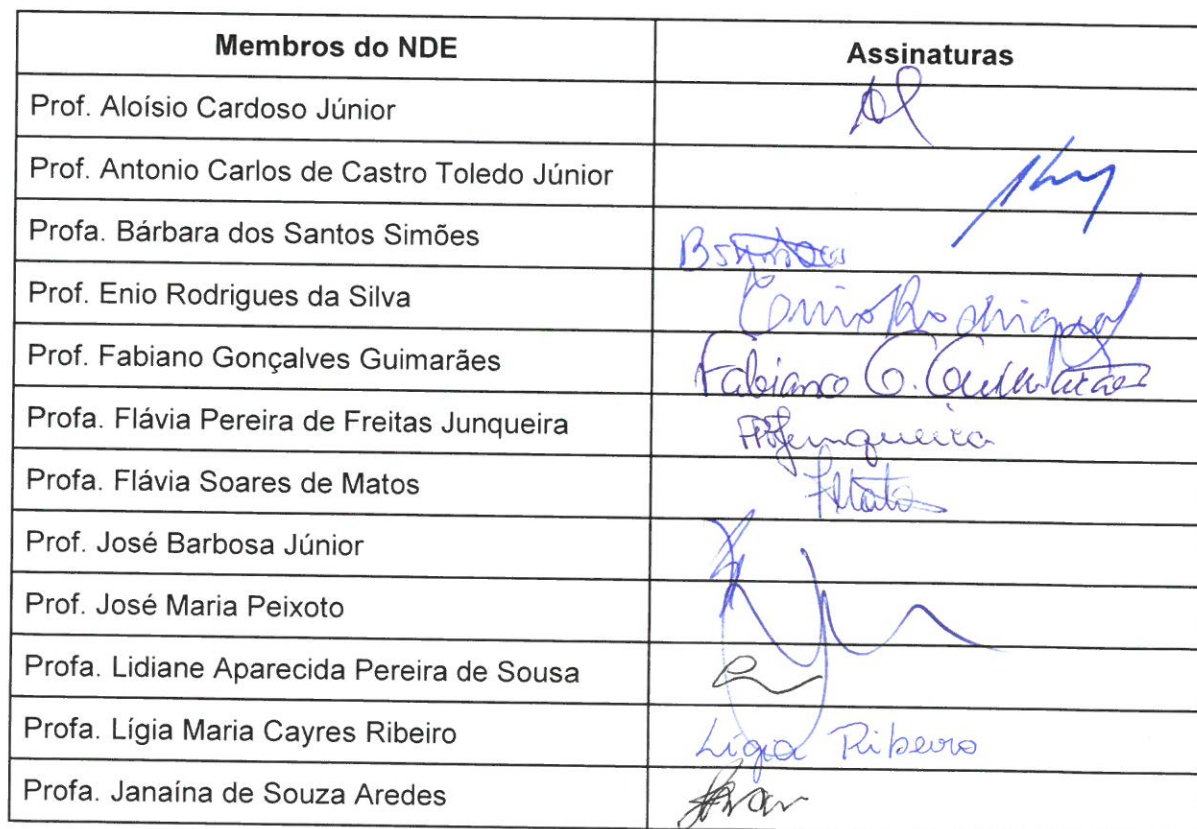 Membros do NDE Assinaturas
Prof. Aloísio Cardoso Júnior
Prof. Antonio Carlos de Castro Toledo Júnior
Profa. Bárbara dos Santos Simões
Prof. Enio Rodrigues da Silva Enio Rodrigues
Prof. Fabiano Gonçalves Guimarães Fabiano G. Guimarães
Profa. Flávia Pereira de Freitas Junqueira FPFJunqueira
Profa. Flávia Soares de Matos
Prof. José Barbosa Júnior
Prof. José Maria Peixoto
Profa. Lidiane Aparecida Pereira de Sousa
Profa. Lígia Maria Cayres Ribeiro Lígia Ribeiro
Profa. Janaína de Souza Aredes